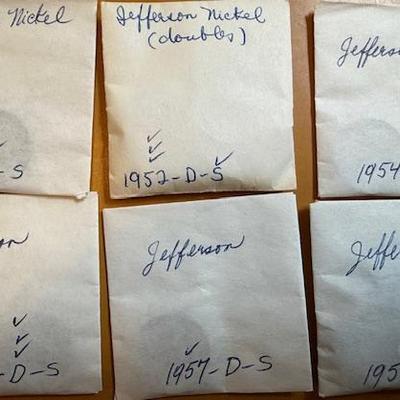 Nickel
-S
Jefferson Nickel
(doubles)
✓
✓
✓ ✓
1952-D-S
Jeffers
1954
on
✓
✓
✓
-D-S
Jefferson
✓
1957-D-S
Jeffe
195